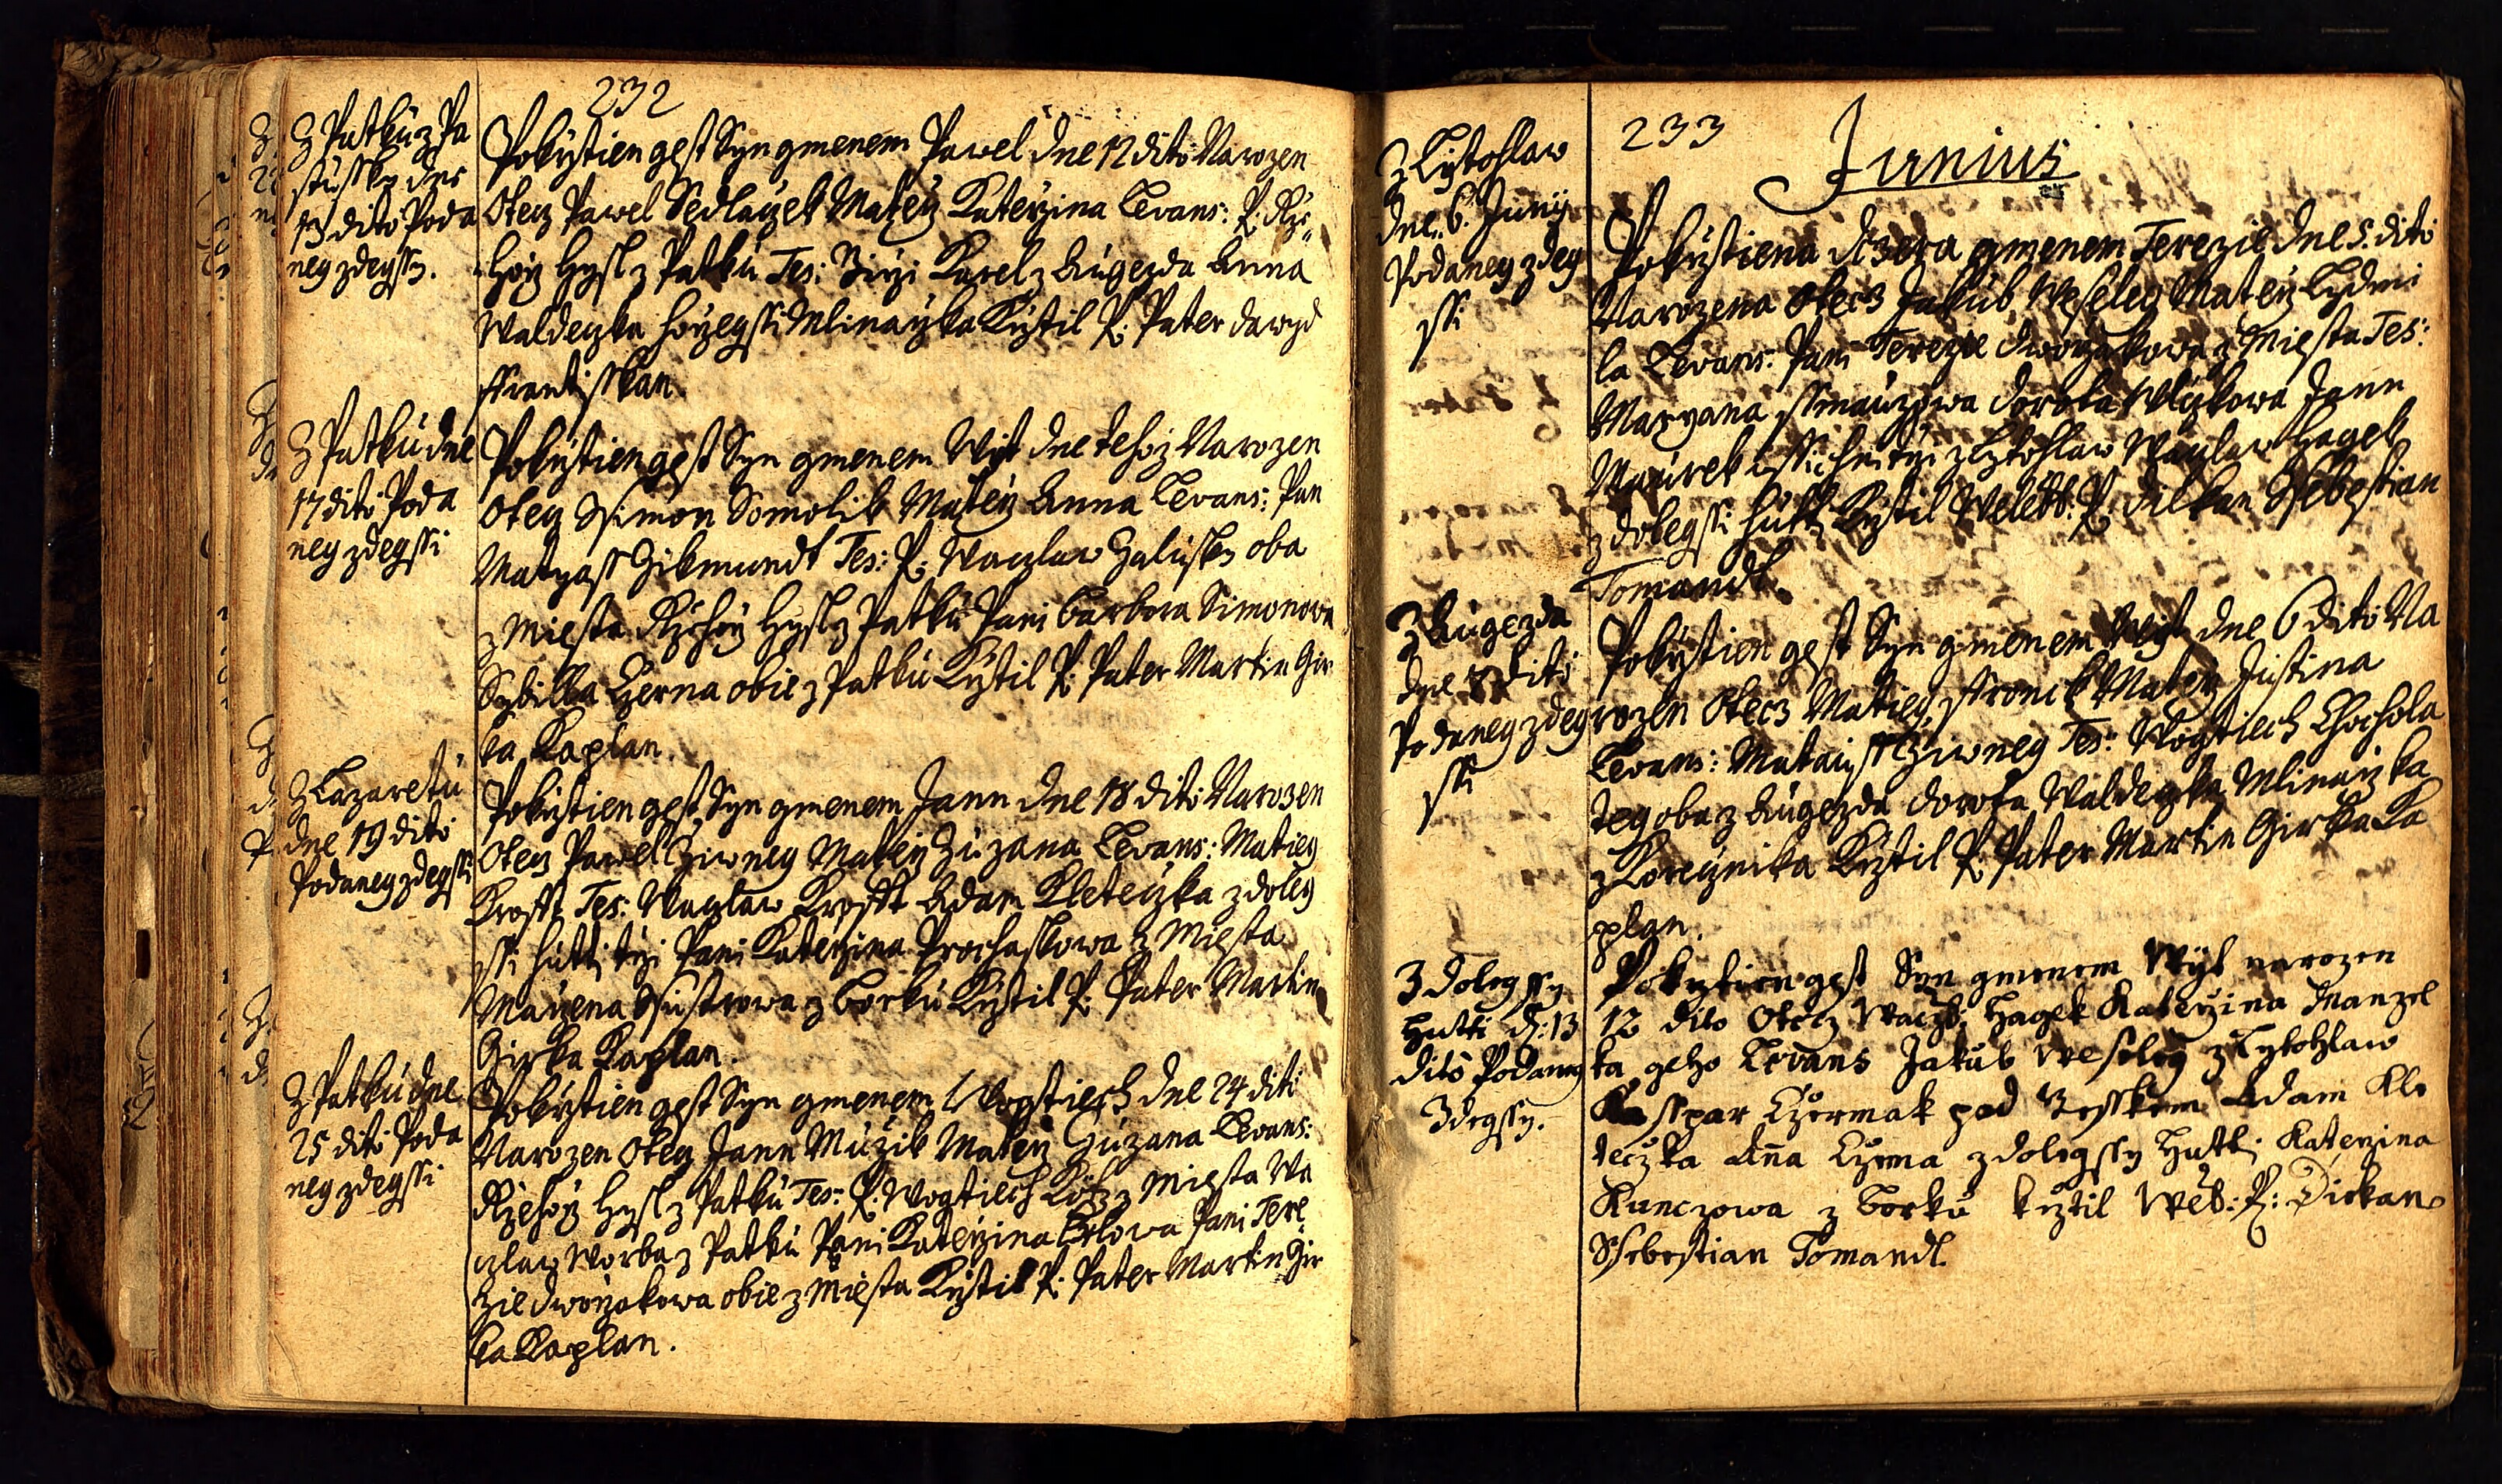 232
Z Patku z Pa
stussky dne
13 dito Poda
neg zdegssy.
Pokrztien gest Syn gmenem Pawel dne 12 dito Narozen
Otecz Pawel Sedlaczek Matka Katerzina Levans: P. Rze
horz Hysl z Patku Tes: Girzi Karel z Augezda Anna
Waldeczka horzegssi Mlinarzka Krztil P. Pater dawyd
ffrantisskan.
Z Patku dne
17 dito Poda
neg zdegssi
Pokrztien gest Syn gmenem Wit dne tehoz Narozen
Otecz Ssimon Somolik Matka Anna Levans: Pan
Matyass Zikmundt Tes: P. Waczlaw Halussky oba
z Miesta Rzehorz Hysl z Patku Pani Barbora Simonova
Sybilla Czerna obie z Patku Krztil P. Pater Martin Gir
ka Kaplan.
Z Lazaretu
dne 19 dito
Podaneg zdegssi
Pokrztien gest Syn gmenem Jann dne 18 dito Narozen
Otecz Pawel Ziwney Matka Zuzana Levans: Matieg
Krofft Tes: Waczlaw Krofft Adam Kleteczka z doleg
ssi hutti trzi Pani Katerzina Prochaskowa z Miesta
Marzena Ssustrowa z Borku Krztil P. Pater Martin
Girka Kaplan.
Z Patku dne
25 dito Poda
neg zdegssi
Pokrztien gest Syn gmenem Wogtiech dne 24 dito
Narozen Otecz Jann Muzik Matka Zuzana Levans:
Rzehorz Hysl z Patku Tes: P. Wogtiech z Miesta Wa
czlaw Worba z Patku Pani Katerzina Pani Tere
zie dworzakowa obie z Miesta Krztil P. Pater Martin Gir
ka Kaplan.
233
Junius
Z Lytohlaw
dne 6. Juny
Podaneg zdeg
ssi
Pokrztiena dczera gmenem Terezie dne 5. dito
Narozena Otecz Jakub Weseley Matka Lydmi
la Levans: Pani Terezie dworzakowa z Miesta Tes:
Maryana dorota Wlczkowa Jann
Maurek z Lytohlaw Waczlaw Hagek
z dolegssi hutti Krztil Weleb: P. diekan Ssebestian
Tomandl.
Z Augezda
dne 7 dito
Podaneg zdeg
ssi
Pokrztien gest Syn gmenem Wit dne 6 dito Na
rozen Otecz Matieg ffronek Matka Justina
Levans: Matausz Ziwney Tes: Wogtiech Chochola
teg oba z Augezda dorota Waldeczka Mlinarzka
z Korecznika Krztil P. Pater Martin Girka Ka
plan.
Z dolegssy
Hutti d: 13
dito Podaneg
Zdegssy.
Pokrztien gest Syn gmenem Wyt narozen
12 dito Otecz Waczl: Hagek Katerzina Manzel
ka geho Levans Jakub Weseley z Lytohlaw
Kasspar Czermak pod Adam Kle
teczka Anna Czerna z dolegssy Hutti Katerzina
Kunczowa z Borku krztil Web: P: Diekan
Ssebestian Tomandl.